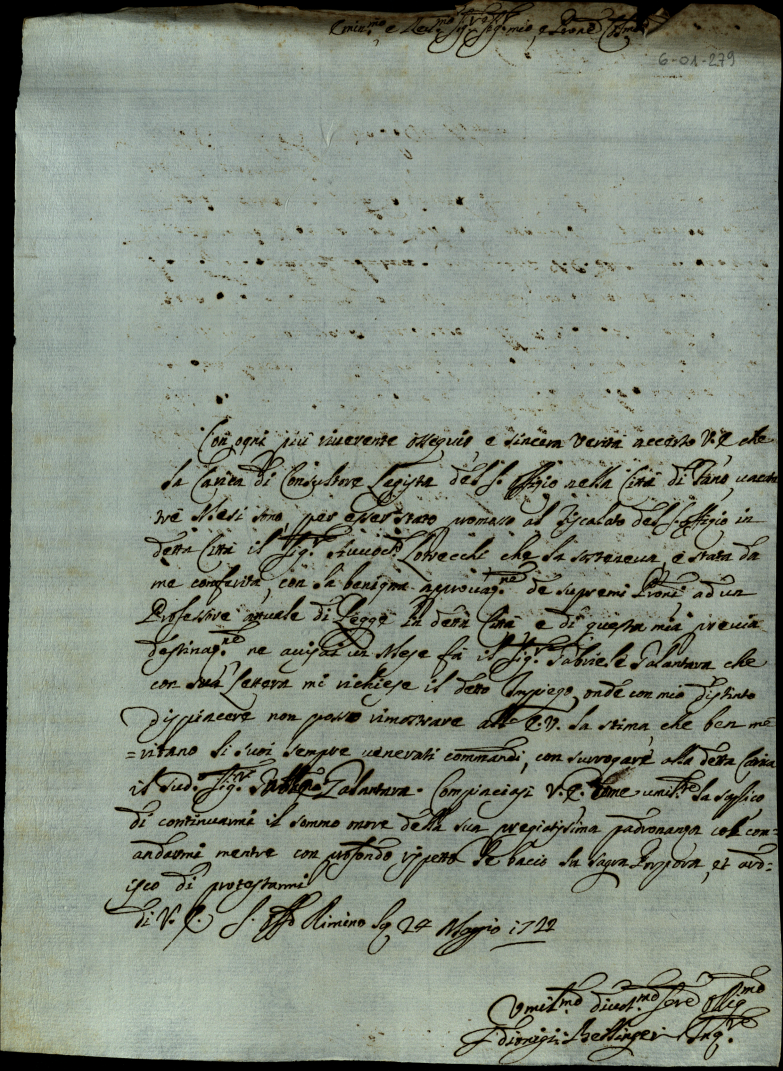 Emin:mo e Rev:mo Sig:re Sig:r mio, e Prone Col:mo
6-01-279
Con ogni più riverente ossequio, e sincera verità accerto V. E. che
la Carica di Consultore Legista del S. Offizio nella Città di Fano, vacata
tre Mesi sono, per esser stato promosso al Fiscalato del S. Offizio in
detta Città il Sig:re Avvoc:to che la sosteneva, è stata da
me conferita, con la benigna approvaz:ne de supremi Proni, ad un
Professore attuale di Legge di detta Città, e di questa mia previa
destinaz:ne ne avisai un Mese fà il Sig:r Gabriele Galantara che
con sua Lettera mi richiese il detto Impiego, onde con mio distinto
dispiacere non posso rimostrare all'E. V. la stima, che ben me
=ritano li suoi sempre venerati commandi, con surrogare alla detta Carica
il sud:o Sig:re Galantara. Compiaciasi V. E. come umil:te la supplico
di continuarmi il sommo onore della sua pregiatissima padronanza col com=
andarmi mentre con profondo rispetto le bacio la sagra Porpora, et ard=
isco di protestarmi
di V. E. S. Offo Rimino li 24 Maggio 1722
Umil:mo divot:mo Serv:e Oblig:mo
F. Dionigi Bellingeri Inq:re